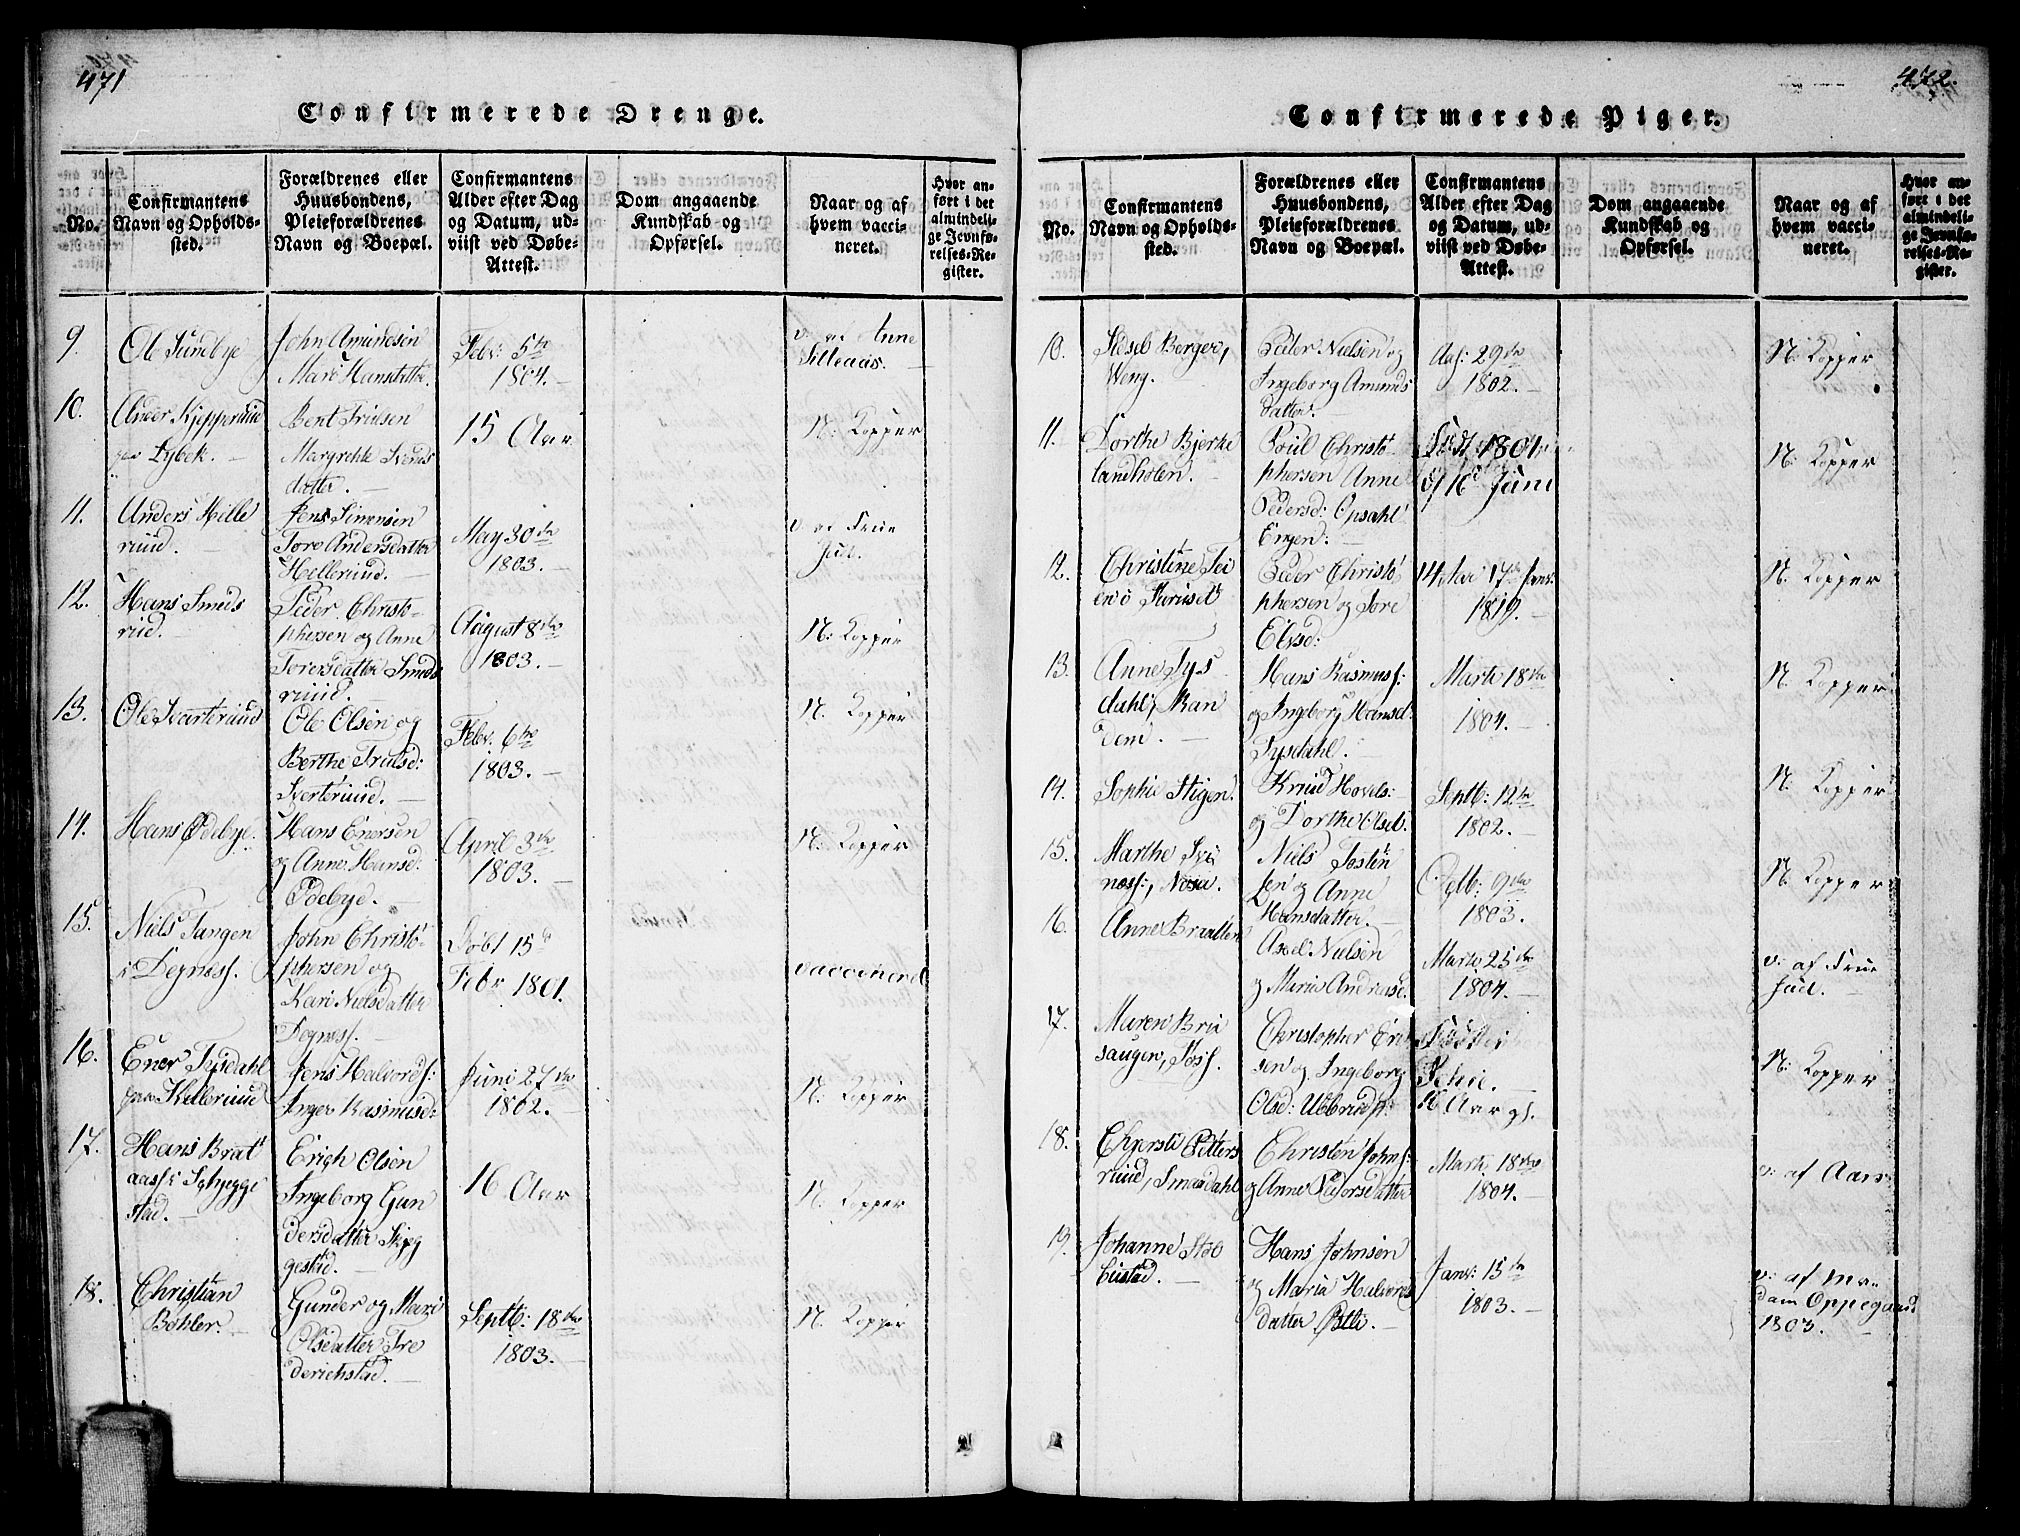 471
Confirmerede Drenge.
No.
Confirmantens
Navn og Opholds-
sted.
Forældrenes eller
Huusbondens,
Pleieforældrenes
Navn og Boepæl.
Confirmantens
Alder efter Dag
og Datum, ud-
viist ved Døbe-
Attest.
Dom angaaende
Kundskab og
Opførsel.
Naar og af
hvem vacci-
neret.
Hvor an-
ført i det
almindeli-
ge Jevnfø-
relses-Re-
gister.
9.
Ole Sundbye
John Amundsen
Mari Hansdatter.
Febr: 5te
1804.
v. af Anne
Silleaas.
10.
Ander Kjepperuud
paa Lybek.
Bent Trulsen
Margrethe Svends
datter.
15 Aar
N: Kopper
11.
Anders Hille
ruud.
Jens Simensen
Tore Andersdatter
Helleruud.
May 30te
1803.
v. af Frue
Juel.
12.
Hans Smeds
rud.
Peder Christo-
phersen og Anne
Toresdatter Smeds
ruud.
August 8de
1803.
N: Kopper
13.
Ole Svarteruud
Ole Olsen og
Berthe Trulsd:
Sverteruud.
Febr. 6te
1803.
N. Kopper
14.
Hans Ødebye.
Hans Enersen
og Anne Hansd:
Ødebye.
April 3de
1803.
N: Kopper
15.
Niels Tangen
i Degnæss.
John Christo-
phersen og
Kari Nielsdatter
Degnæss.
Døbt 15de
Febr 1801.
vaccineret
16.
Ener Tysdahl
paa Kelleruud
Jens Halvords:
Inger Rasmusd:
Juni 27de
1802.
N. Kopper
17.
Hans Brat
aass i Schjegge
stad.
Erich Olsen
Ingeborg Gun
dersdatter Skjeg
gestad.
16 Aar
N. Kopper
18.
Christian
Bøhler.
Gunder og Mari
Olsdatter Fre
derichstad.
Septb: 18de
1803.
N. Kopper
472.
Confirmerede Piger.
No.
Confirmantens
Navn og Opholds-
sted.
Forældrenes eller
Huusbondens,
Pleieforældrenes
Navn og Boepæl.
Confirmantens
Alder efter Dag
og Datum, ud-
viist ved Døbe-
Attest.
Dom angaaende
Kundskab og
Opførsel.
Naar og af
hvem vacci-
neret.
Hvor an-
ført i det
almindeli-
ge Jevnfø-
relses-Re-
gister.
10.
Berger,
Weng.
Peder Nielsen og
Ingeborg Amunds
datter.
29de
1802.
N: Kopper
11.
Dorthe Bjerke
landholen.
Poul Christo-
phersen Anne
Pedersd: Opsahl
Engen:
Født 1801
d/16d Juni
N: Kopper
12.
Christine Tei
en i Furuset
Peder Christo-
phersen og Tore
Elvsd:
14 Aar 17de Janr:
1819.
N. Kopper
13.
Anne Tys
dahl, Ran
dem.
Hans Rasmuss:
og Ingeborg Hansd:
Tysdahl.
Marti 18de
1804.
N. Kopper
14.
Sophie Stigen.
Knud Hovels:
og Dorthe Olsd.
Septb: 12te
1802.
N. Kopper
15.
Marthe Svi
næss:, Næsa.
Niels Josten
sen og Anne
Hansdatter.
Octb: 9de
1803.
N: Kopper
16.
Anne Braatten
Axel Nielsen
og Maria Andreasd.
Marti 25de
1804.
v: af Frue
Juel.
17.
Maren Bri
saugen,
Christopher Eri
sen og Ingeborg
Olsd:
16 Aar gl.
N: Kopper
18.
Chjersti Petters
ruud, Smaadahl
Christen Johns:
og Anne Pedersdatter
Marti 18de
1804.
v: af Aars
19.
Johanne Stae
bustad.
Hans Johnsen
og Maria Halvords
datter Østli.
Janv: 15de
1803.
v: af Ma-
dam Oppegaard
1803.